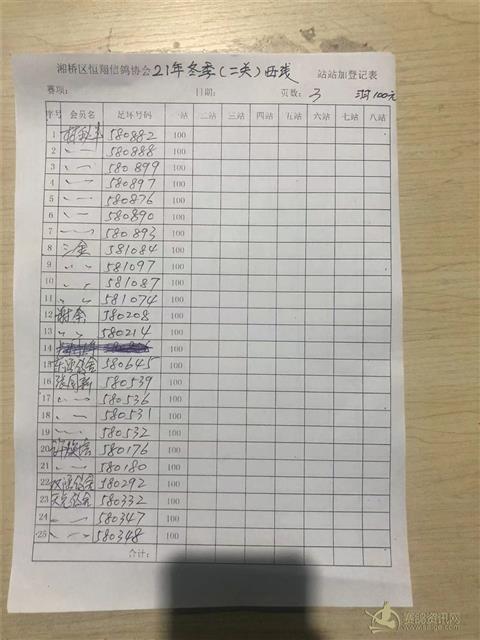 湘桥区恒翔信鸽协会21年冬季(二关)西线 站站加登记表
赛项: 日期: 页数: 3 100元
序号 会员名 足环号码 一站 二站 三站 四站 五站 六站 七站 八站
1 580882 100
2 〃 580888 100
3 〃 580899 100
4 〃 580897 100
5 〃 580876 100
6 〃 580890 100
7 〃 580893 100
8 三金 581084 100
9 〃 581097 100
10 〃 581087 100
11 〃 581074 100
12 谢金 580208 100
13 〃 580214 100
14 100
15 580645 100
16 张国新 580539 100
17 〃 580536 100
18 〃 580531 100
19 〃 580532 100
20 580176 100
21 〃 580180 100
22 580292 100
23 580332 100
24 〃 580347 100
25 〃 580348 100
合计:
赛鸽资讯网